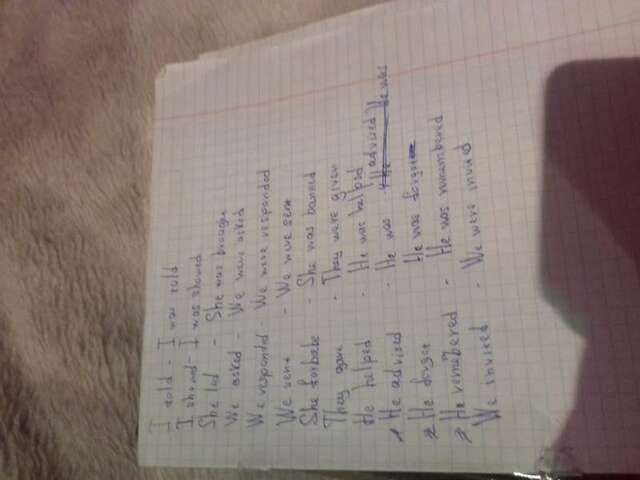 I told - I was told
I showed - I was showed
She led - She was brought
We asked - We were asked
We responded - We were responded
We sent - We were sent
She forbade - She was banned
They gave - They were given
He helped - He was helped
1 He advised - He was advised
2 He forgot He was forgot
3 He remebered - He was remembered
We invited - We were invited